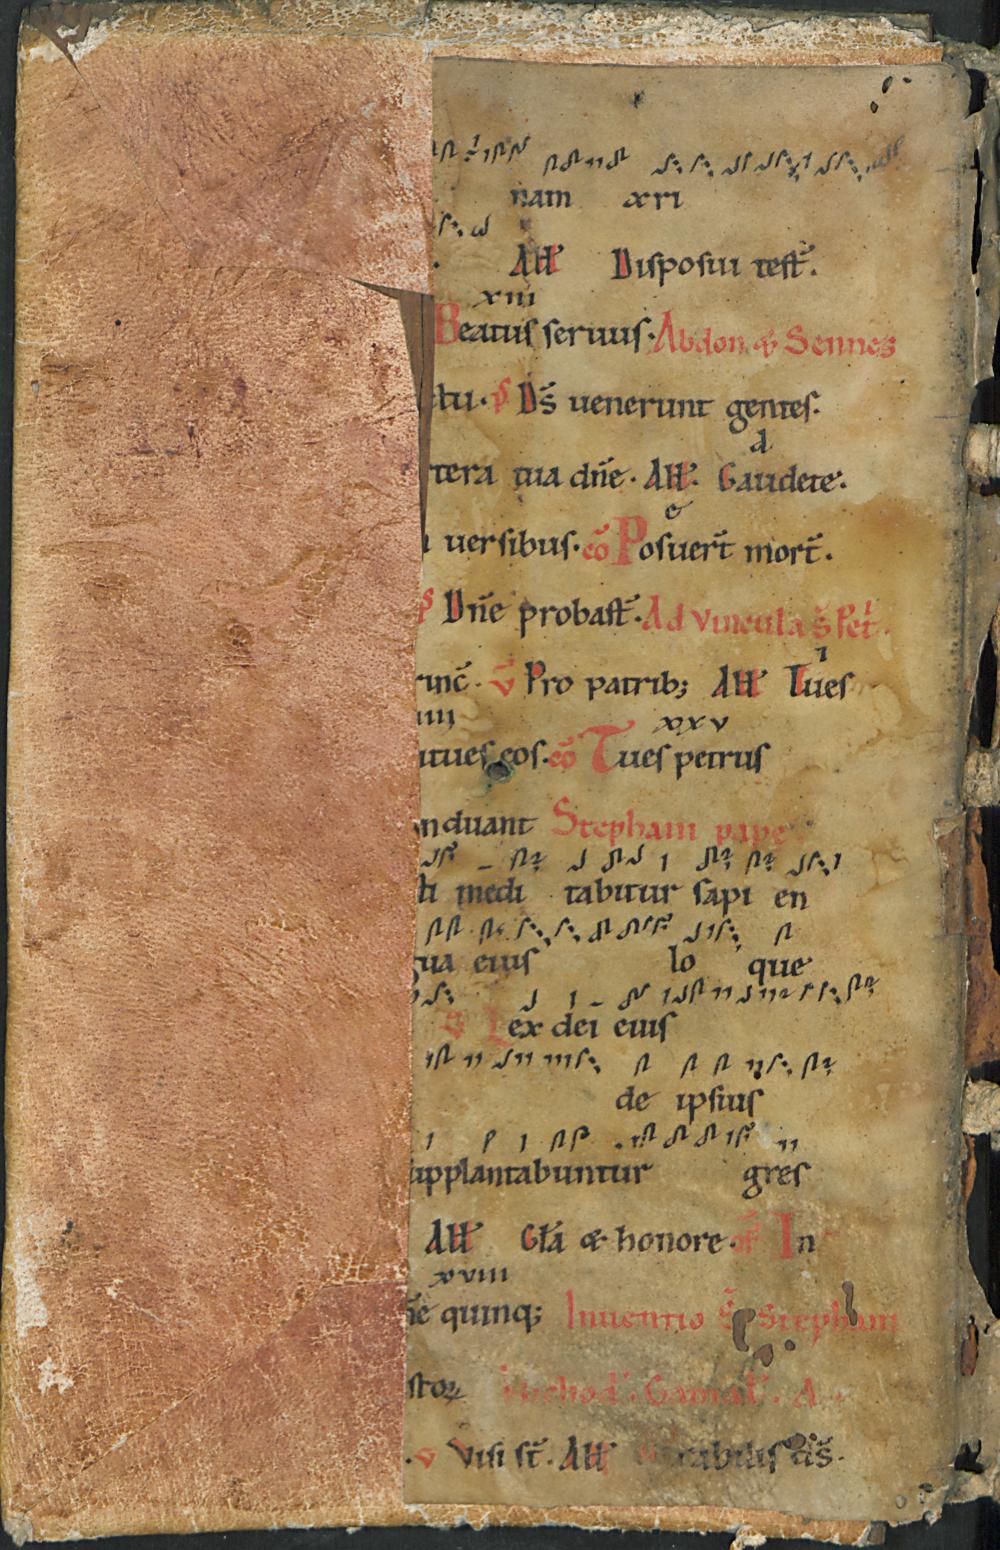 nam xri
All Disposui test̄.
xiii
Beatus seruus. Abdon & Sennes
ctu. p̄s D̄s uenerunt gentes.
d
xtera tua dn̄e. All. Gaudete.
e
uersibus. cō Posuer̄t mort̄.
p̄s Dn̄e probast̄. Ad vincula s̄ Pet
i
rinc̄. v̄ Pro patrib; All Tu es
iiii xxv
itues eos. cō Tu es petrus
nduant Stephani pape
ti medi tabitur sapi en
gua eius lo que
s̄ Lex dei eius
de ipsius
upplantabuntur gres
All Gl̄a & honore. of̄ In
xviii
n̄e quinq; Inuentio s̄ Stephani
stoꝝ Nichod. Gamal. A
v Visi st̄. All rabilis d̄s.